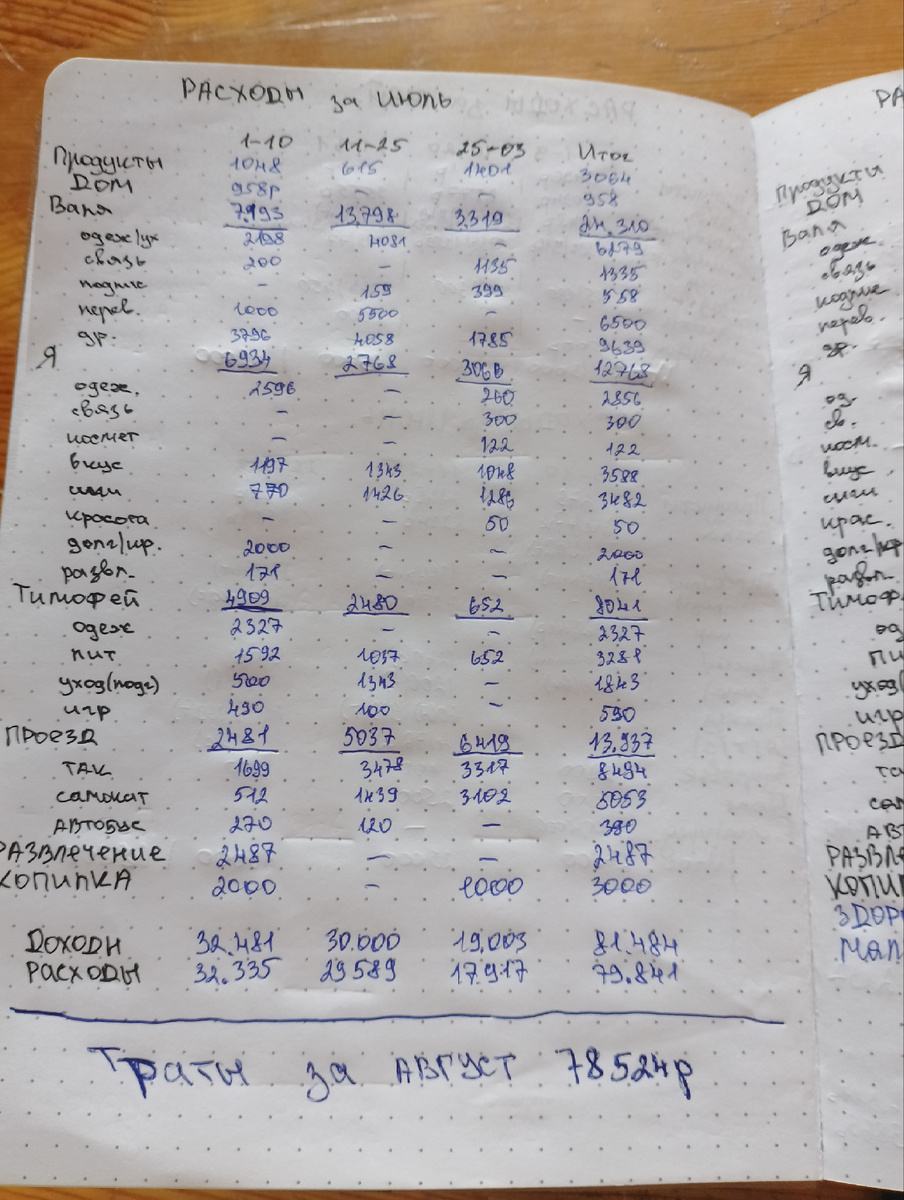 РАСХОДЫ за ИЮЛЬ
РА
1-10 11-25 25-03 Итог
Продукты 1048 615 1401 3064
ДОМ 958р - - 958
Ваня 7.193 13.798 3.319 24.310
одеж/ух 2198 4081 - 6279
связь 200 - 1135 1335
подпис - 159 399 558
перев. 1000 5500 - 6500
др. 3796 4058 1785 9639
Я 6934 2768 3066 12768
одеж. 2596 - 260 2856
связь - - 300 300
космет - - 122 122
вкус 1197 1343 1048 3588
сиги 770 1426 1286 3482
красота - - 50 50
долг/кр. 2000 - - 2000
развл. 171 - - 171
Тимофей 4909 2480 652 8041
одеж 2327 - - 2327
пит 1592 1037 652 3281
уход(подг) 500 1343 - 1843
игр 490 100 - 590
ПРОЕЗД 2481 5037 6419 13.937
ТАК 1699 3478 3317 8494
самокат 512 1439 3102 5053
АВТОБУС 270 120 - 390
РАЗВЛЕЧЕНИЕ 2487 - - 2487
КОПИЛКА 2000 - 1000 3000
ДОХОДЫ 32.481 30.000 19.003 81.484
РАСХОДЫ 32.335 29589 17.917 79.841
Траты за АВГУСТ 78524р
Продукты
ДОМ
Ваня
одеж.
связь
подпис
перев.
др.
Я
од.
св.
косм.
вкус
сиги
крас.
долг/кр
развл.
Тимоф
од
пи
уход(
игр
ПРОЕЗД
та
сам
АВ
РАЗВЛЕ
КОПИЛ
ЗДОР
МАЛ